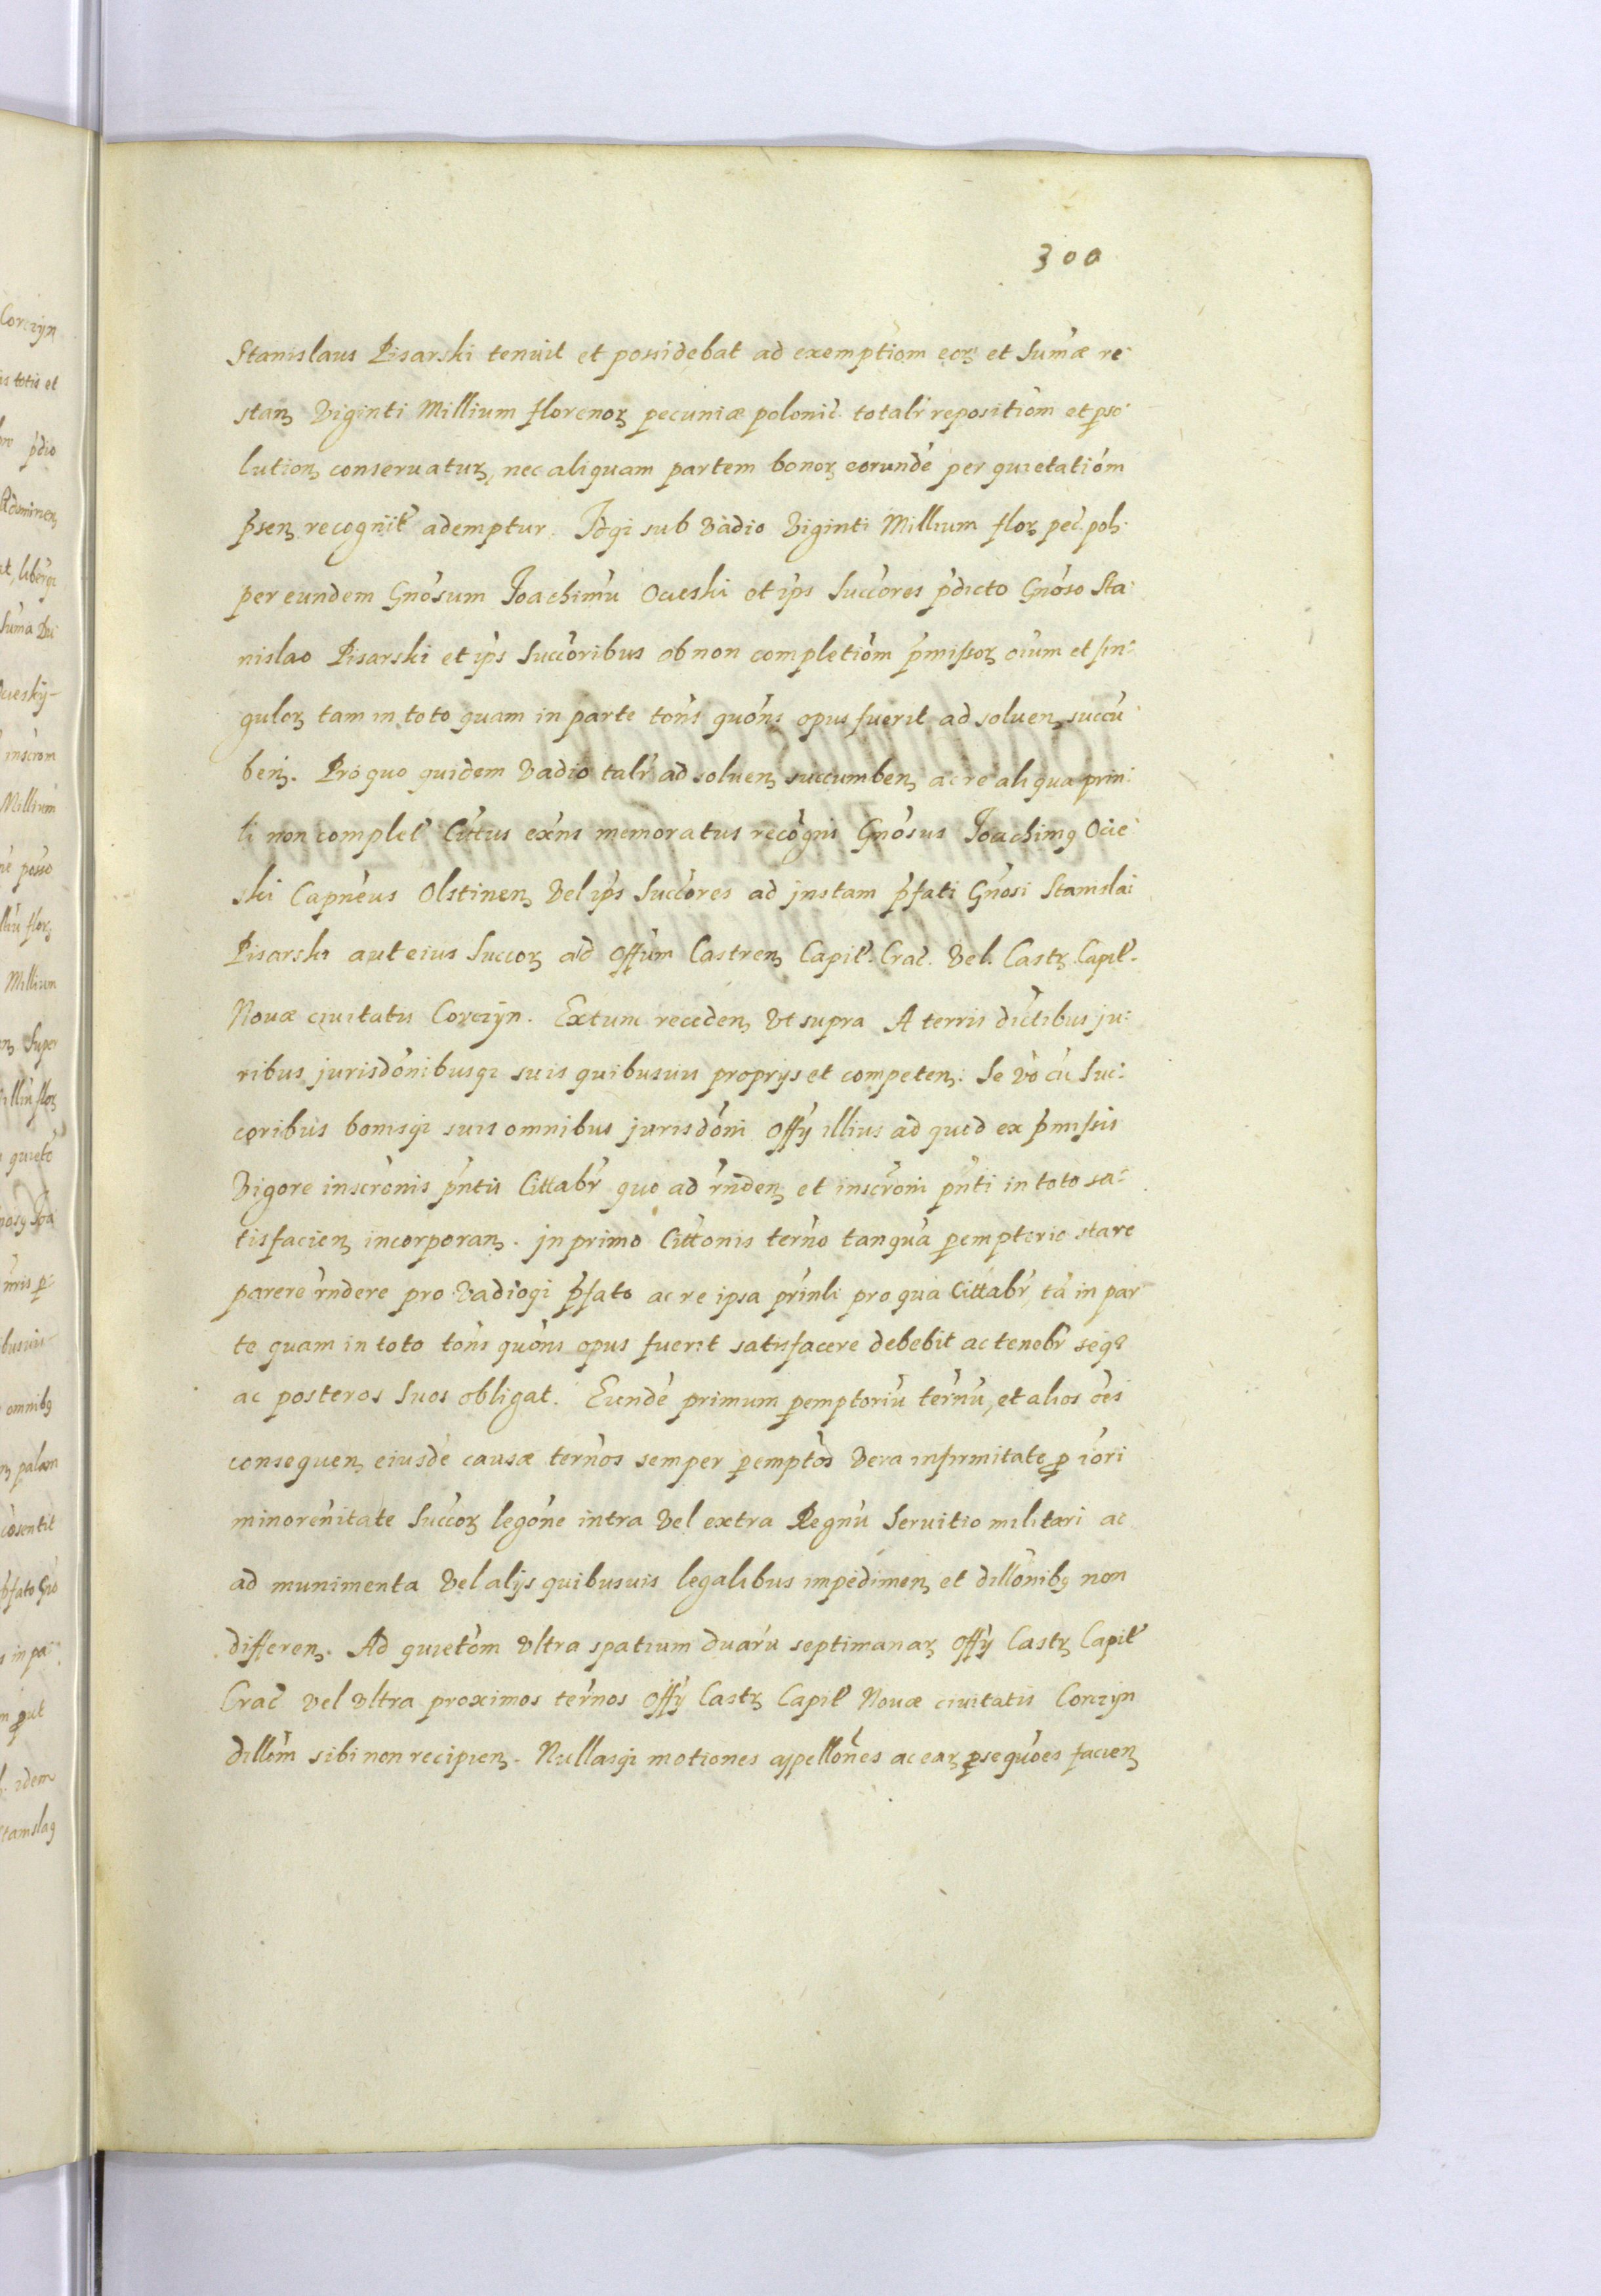 300
Stanislaus Pisarski tenuit et possidebat ad exemptiom eorʒ et Sumæ re:
stanʒ Viginti Millium florenorʒ pecuniæ polonic. totalr repositiom et pso
lutionʒ conseruaturʒ, nec aliquam partem bonorʒ eorundē per quietatiom
psenʒ recognit ademptur. Idqi sub Vadio Viginti Millium florʒ pec. polʒ.
per eundem Gnosum Joachimū Ocieski et ips Succores pdicto Gnoso Sta:
nislao Pisarski et ips Succoribus ob non completiom pmissorʒ oium et sin:
gulorʒ tam in toto quam in parte tons quons opus fuerit ad soluenʒ succū
benʒ. Pro quo quidem Vadio talr ad soluenʒ succumbenʒ ac re aliqua prin:
li non complet Cittus exns memoratus recognis Gnosus Joachimꝯ Ocie:
ski Capneus Olstinenʒ Vel ips Succores ad jnstam pfati Gnosi Stanislai
Pisarski aut eius Succorʒ ad Offum Castrenʒ Capit. Crac. Vel. Castrʒ Capit.
Nouæ ciuitatis Corczyn. Extunc recedenʒ Vt supra A terris dictibus ju:
ribus jurisdonibusqʒ suis quibusuis proprys et competenʒ. Se Vo cū Suc:
coribus bonisqʒ suis omnibus jurisdoni Offy illius ad quod ex pmissis
Vigore inscronis pntis Cittabr quo ad rndenʒ et inscroni pnti in toto sa:
tisfacienʒ incorporanʒ. jn primo Cittonis terno tanquā pemptorio stare
parere rndere pro Vadioqi pfato ac re ipsa prinli pro qua Cittabr, tā in par
te quam in toto tons quons opus fuerit satisfacere debebit ac tenebr seqʒ
ac posteros Suos obligat. Eundē primum pemptoriū ternū, et alios oes
consequenʒ eiusdē causæ ternos semper pemptod Vera infirmitate p iori
minorenitate Succorʒ legone intra Vel extra Regnū Seruitio militari ac
ad munimenta Vel alijs quibusuis legalibus impedimenʒ et dillonibꝯ non
differenʒ. Ad quietom Vltra spatium duarū septimanarʒ Offy Castrʒ Capit
Crac vel Vltra proximos ternos Offy Castrʒ Capit Nouæ ciuitatis Corczyn
dillom sibi non recipienʒ. Nullasqi motiones appellones ac earʒ psequoes facienʒ